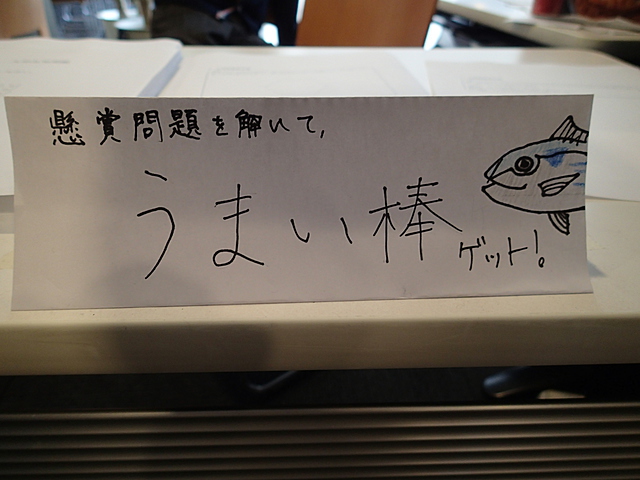 懸賞問題を解いて,
うまい棒
ゲット!